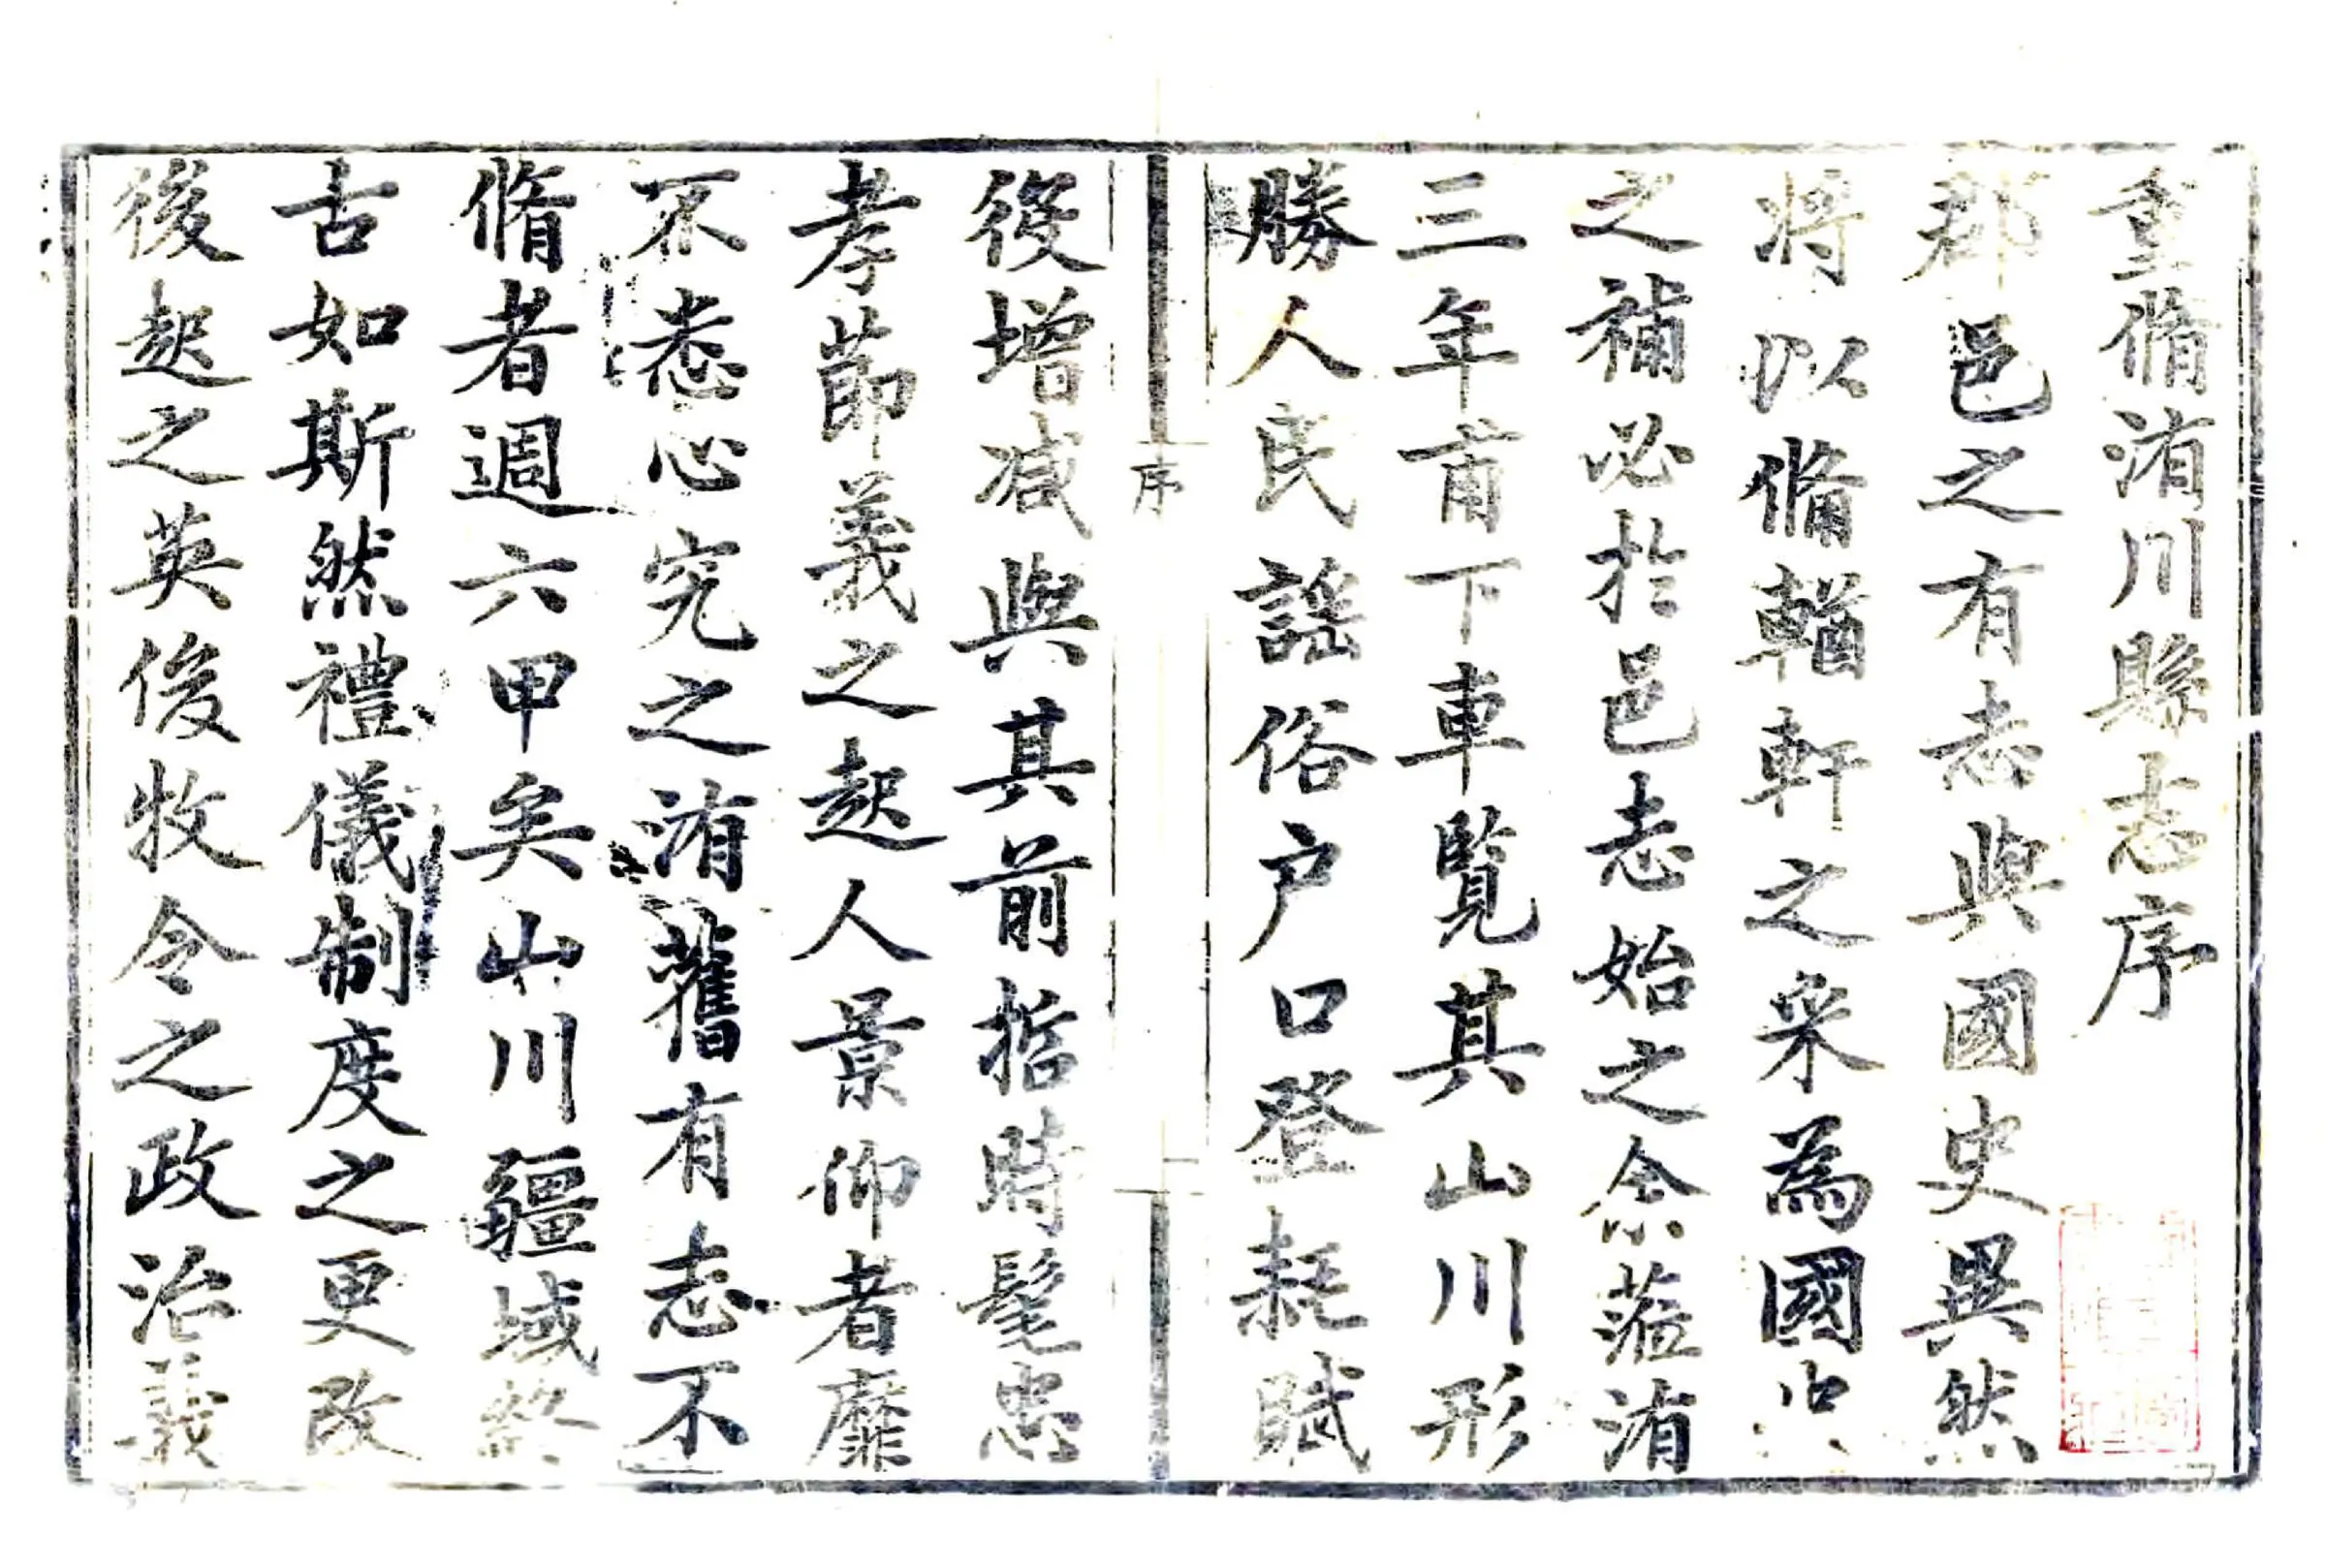 重脩洧川縣志序
郡邑之有志與國史異然
將以脩輶軒之采為國史
之補必於邑志始之余蒞洧
三年甫下車覽其山川形
勝人民謡俗户口登耗賦
役增减與其前哲時髦忠
孝莭義之起人景仰者靡
不悉心究之洧舊有志不
脩者週六甲矣山川疆域終
古如斯然禮儀制度之更改
後起之英俊牧令之政治義
序